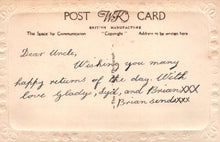 POST WK CARD
BRITISH MANUFACTURE
The Space for Communication "Copyright" Address to be written here
Dear Uncle,
Wishing you many
happy returns of the day. With
love Gladys, Syd, and Brian XXX
Brian sends XXX